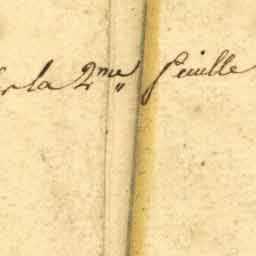 la 2me feuille